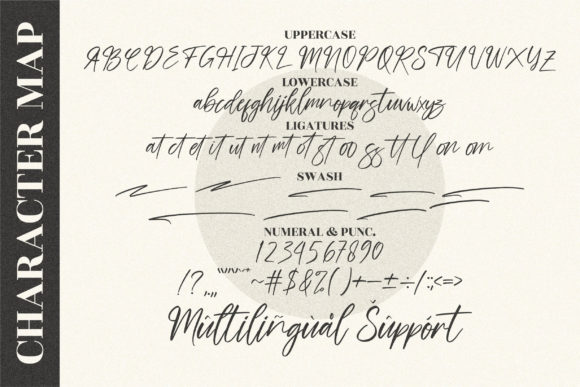 CHARACTER MAP
UPPERCASE
ABCDEFGHIJKLMNOPQRSTUVWXYZ
LOWERCASE
abcdefghijklmnopqrstuvwxyz
LIGATURES
at ct et it ut nt mt ot st oo ss tt ll on om
SWASH
NUMERAL & PUNC.
1234567890
~#$&%()+-±÷/:;<=>
Mûltiliñgùål Šûppórt